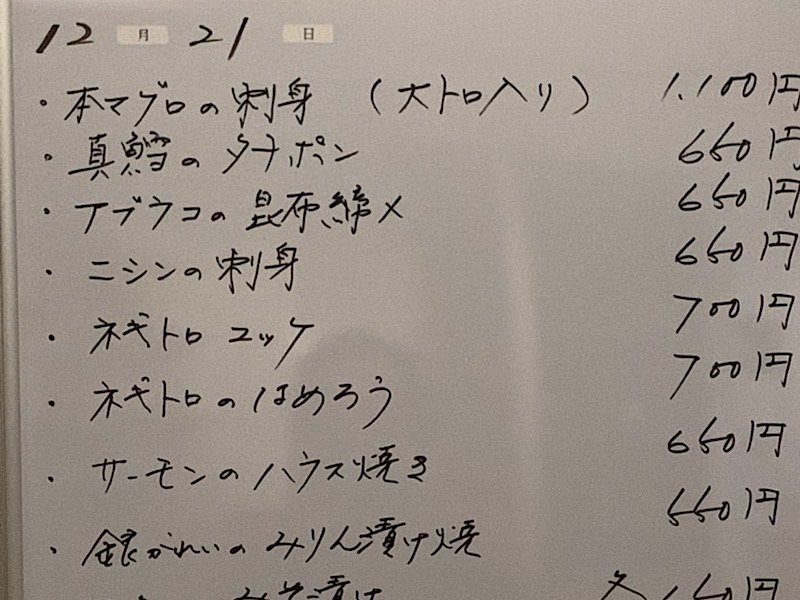 12月21日
・本マグロの刺身 (大トロ入り) 1.100円
・真鱈のタチポン 650円
・アブラコの昆布締メ 650円
・ニシンの刺身 650円
・ネギトロユッケ 700円
・ネギトロのなめろう 700円
・サーモンのハラス焼き 650円
・銀がれいのみりん漬け焼 550円
みそ漬け